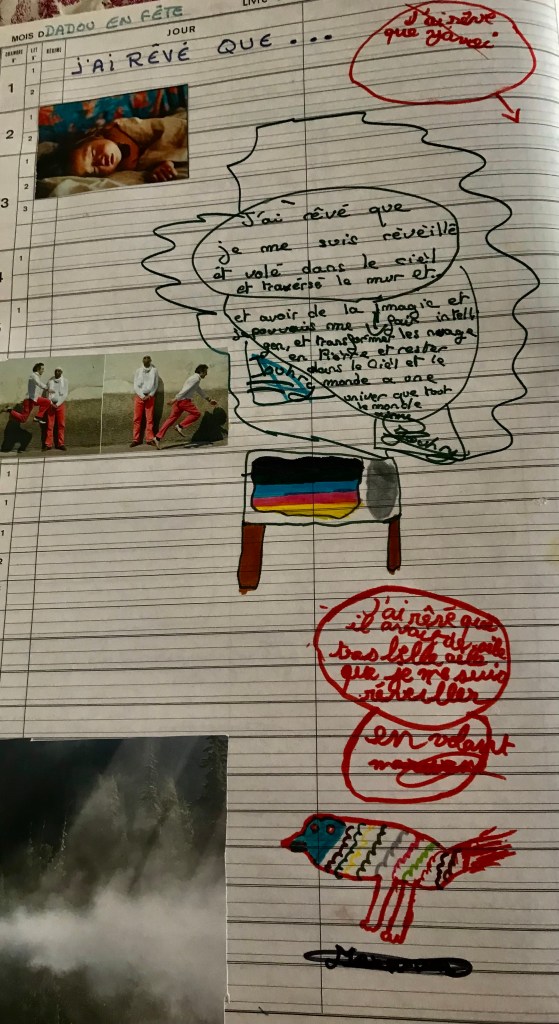 LIVRE
MOIS D
DADOU EN FÊTE
JOUR
CHAMBRE N°
LIT N°
RÉGIME
J'AI RÊVÉ QUE...
1
2
3
J'ai rêvé
que
J'ai rêvé que
je me suis réveillé
et volé dans le ciel
et traversé le mur et..
et avoir de la magie et
je pouvais me
gen, et transformer les nuage
en et rester
dans le ciel et le
monde a une
univer que tout
le monde
J'ai rêvé que
il avait de
tras belle
que je me suis
réveiller
en volant